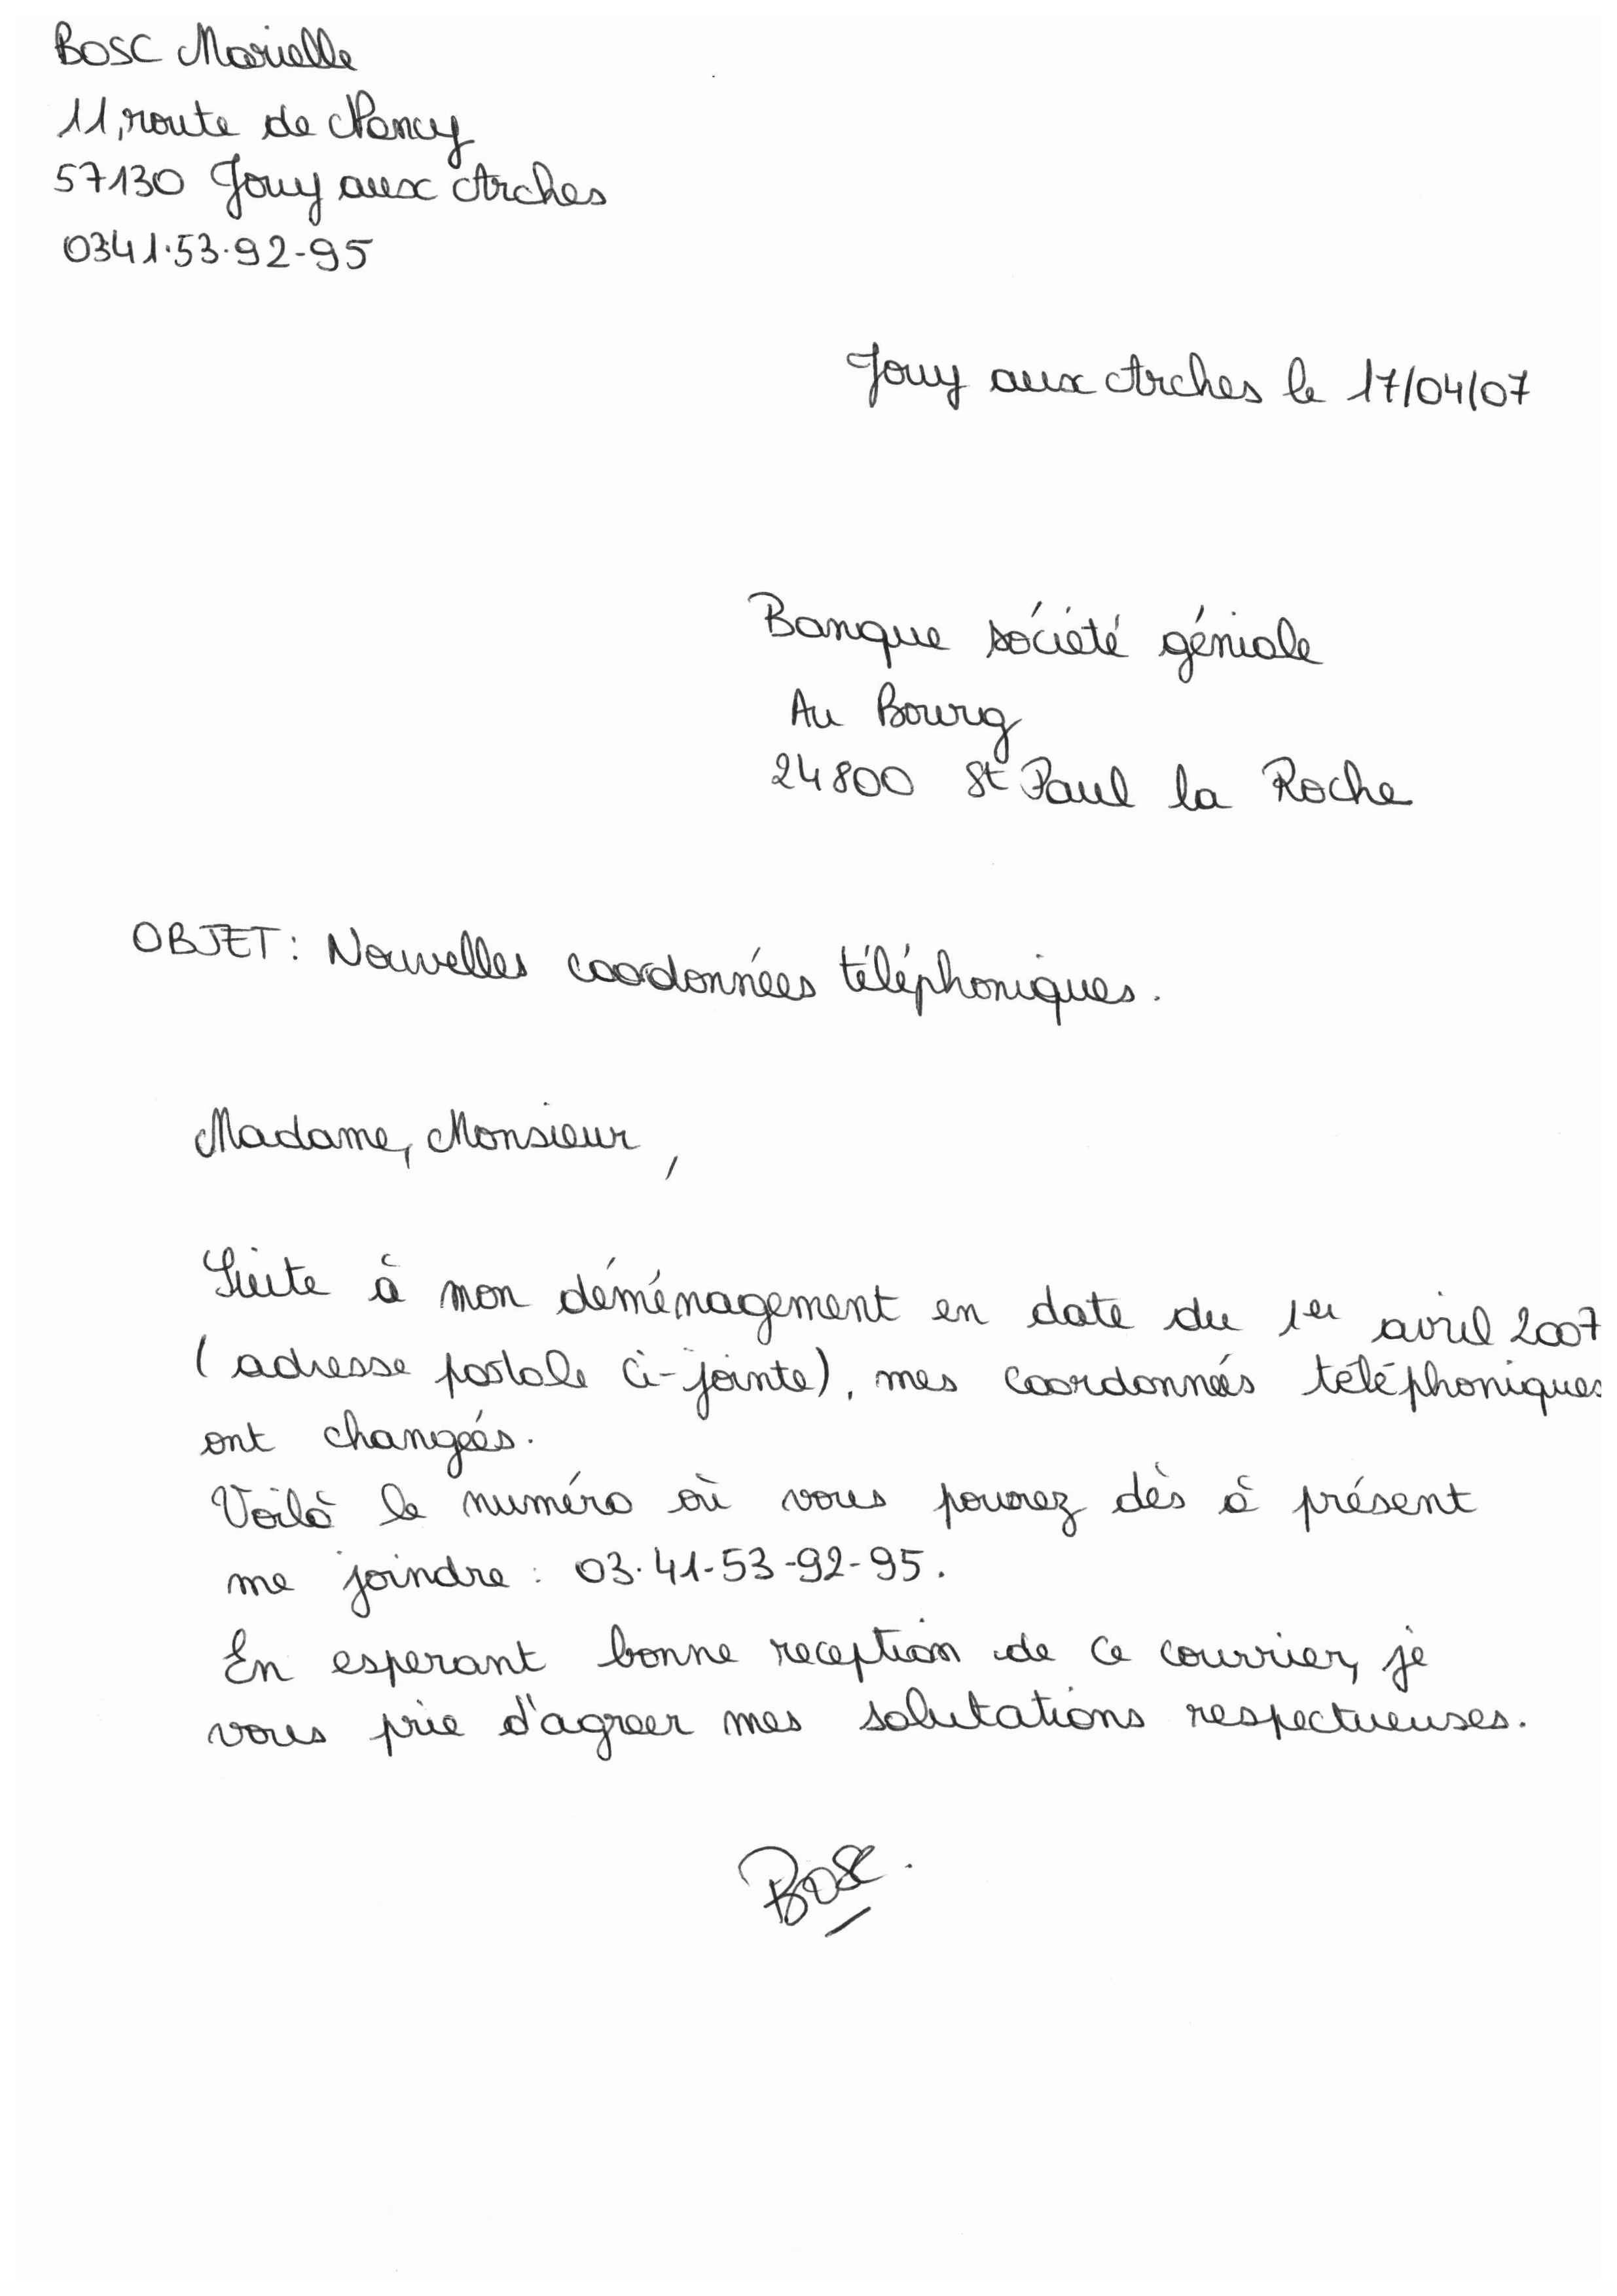 BOSC Marielle
11, route de Nancy
57130 Jouy aux Arches
0341.53.92-95
Jouy aux Arches le 17/04/07
Banque société géniale
Au Bourg
24800 St Paul la Roche
OBJET : Nouvelles coordonnées téléphoniques.
Madame, Monsieur,
Suite à mon déménagement en date du 1er avril 2007
(adresse postale ci-jointe), mes coordonnées téléphoniques
ont changées.
Voilà le numéro où vous pourrez dès à présent
me joindre : 03.41-53-92-95.
En esperant bonne reception de ce courrier, je
vous prie d'agreer mes salutations respectueuses.
Bosc.